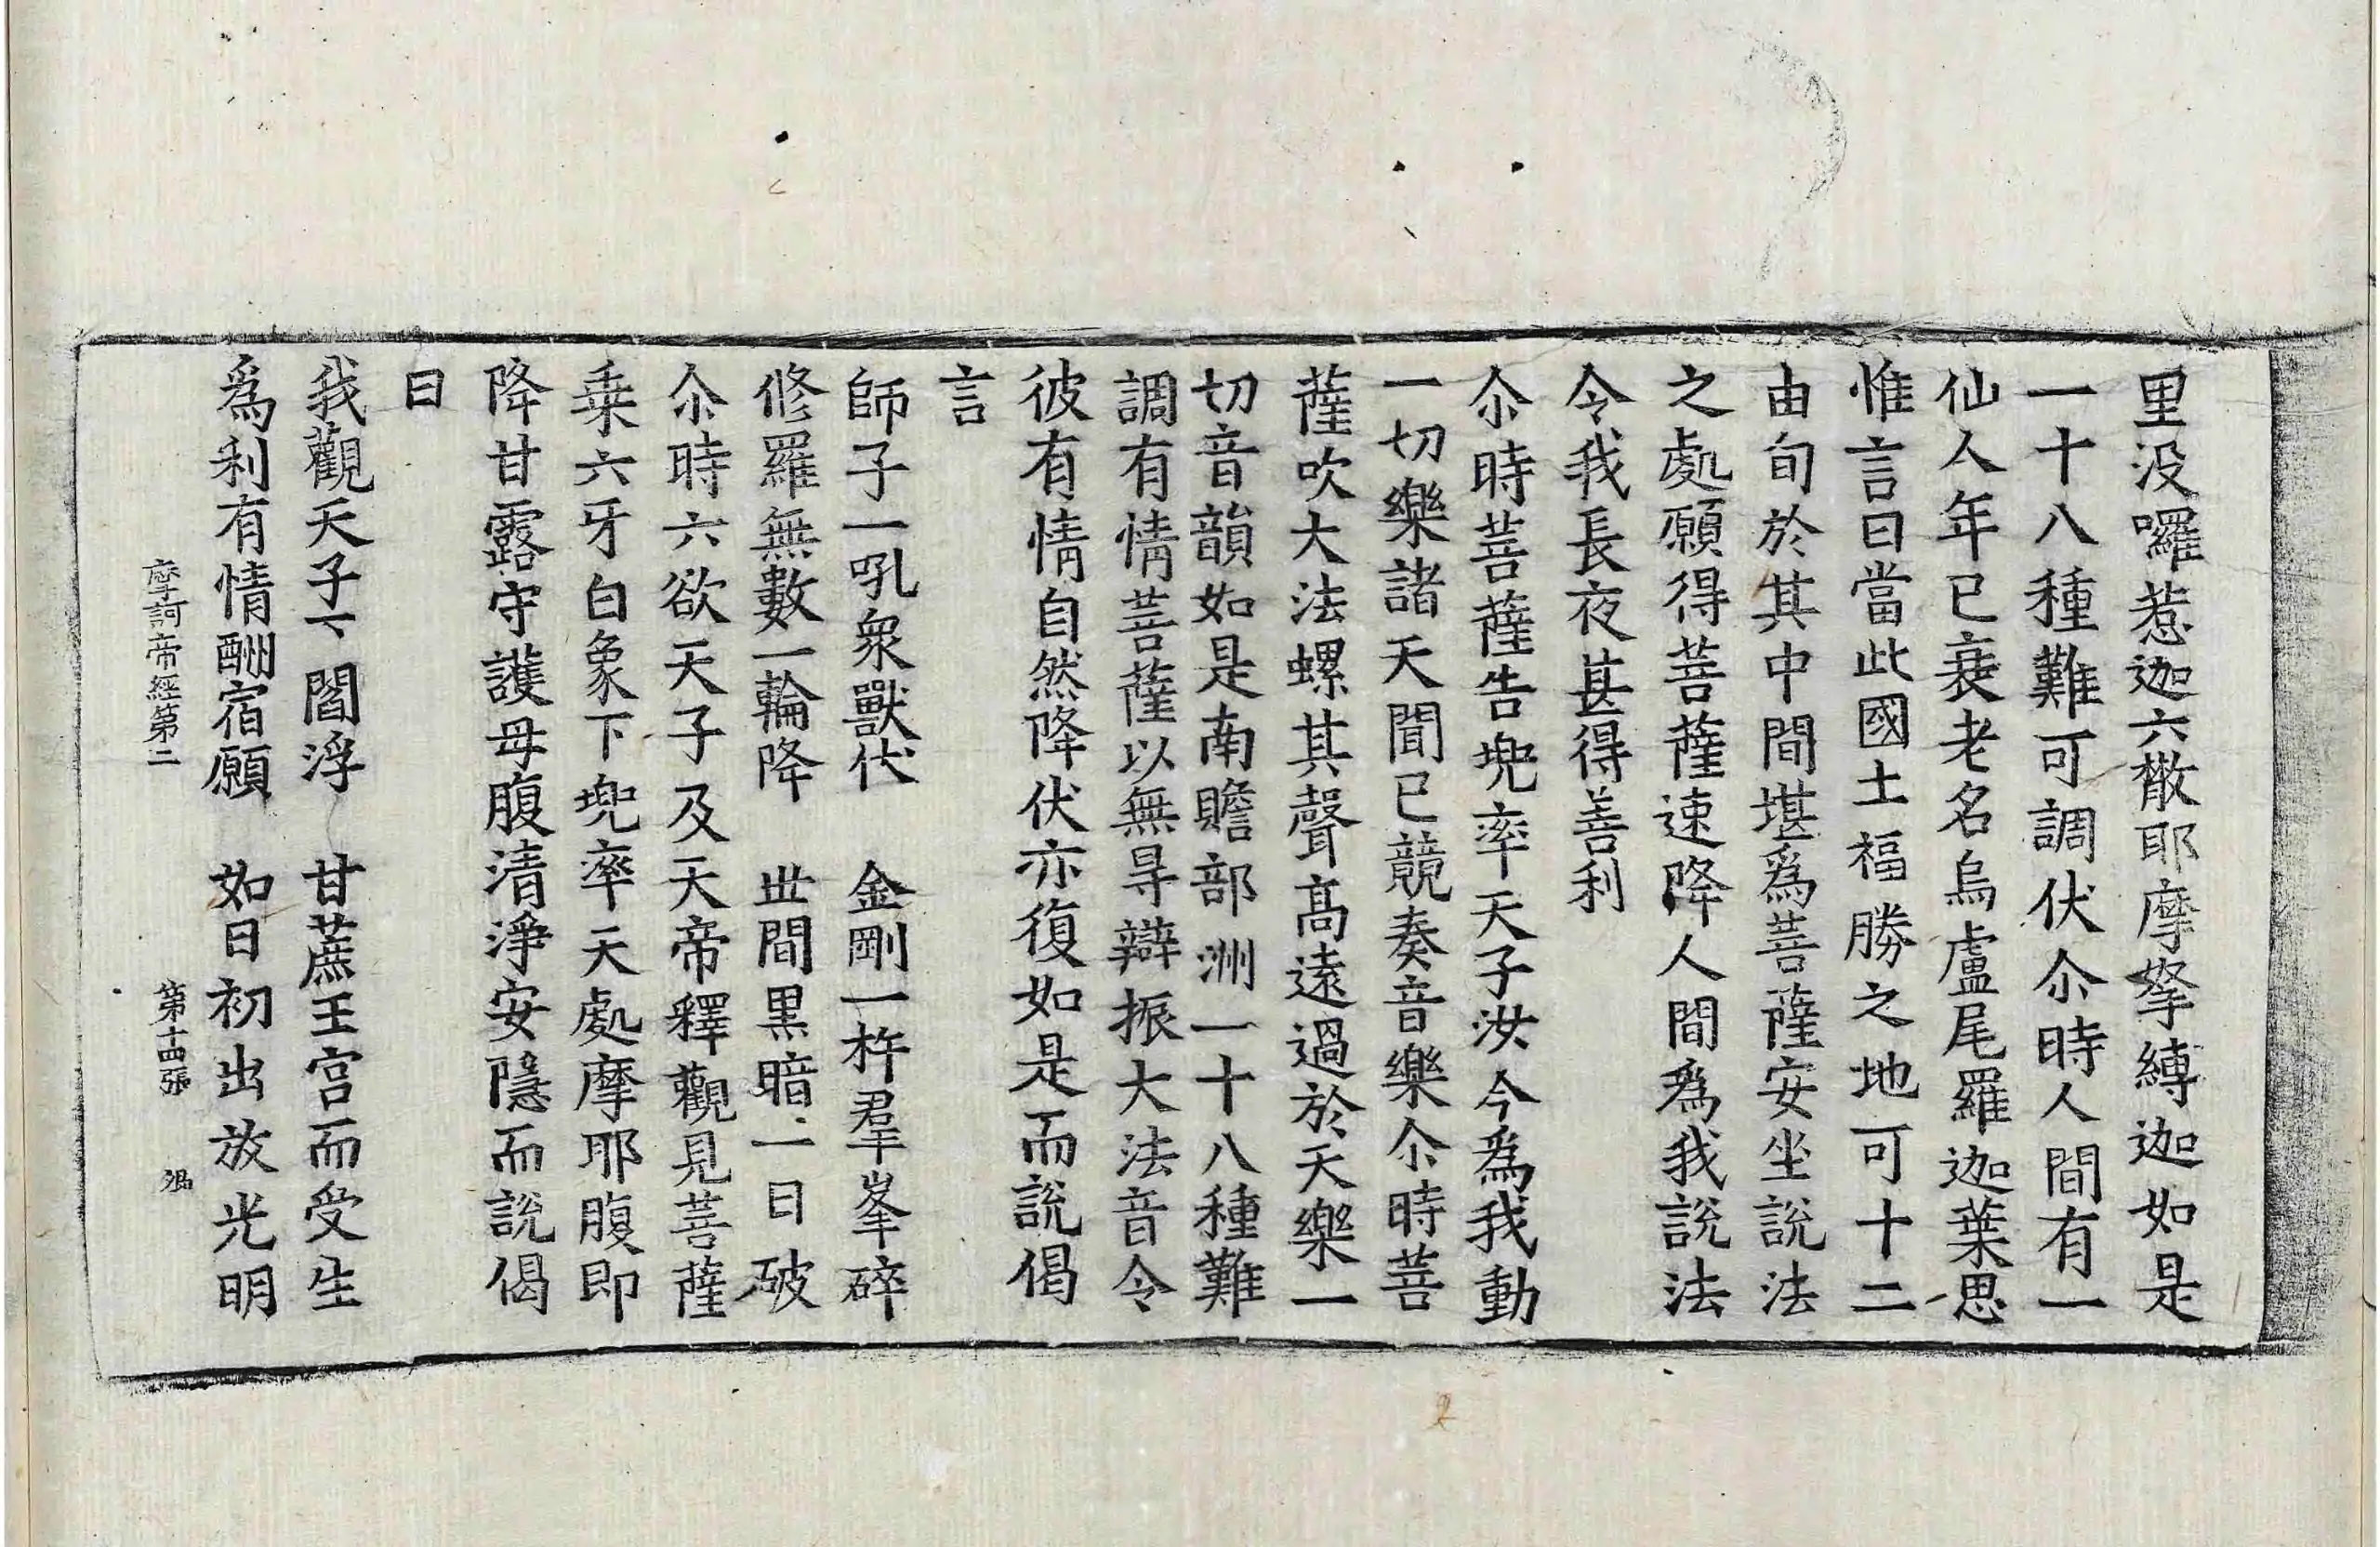 里没囉惹迦六㪚耶摩拏縛迦如是
一十八種難可調伏尒時人間有一
仙人年已衰老名烏盧尾羅迦葉思
惟言曰當此國土福勝之地可十二
由旬於其中間堪爲菩薩安坐説法
之處願得菩薩速降人間爲我説法
令我長夜甚得善利
尒時菩薩告兠率天子汝今爲我動
一切樂諸天聞已競奏音樂尒時菩
薩吹大法螺其聲髙遠過於天樂一
切音韻如是南贍部洲一十八種難
調有情菩薩以無㝵辯振大法音令
彼有情自然降伏亦復如是而説偈
言
師子一吼衆獸伏　金剛一杵羣峯碎
修羅無數一輪降　丗間黒暗一日破
尒時六欲天子及天帝釋觀見菩薩
乗六牙白象下兠率天處摩耶腹即
降甘露守護母腹清淨安隱而説偈
曰
我觀天子下閻浮　甘蔗王宫而受生
爲利有情酬宿願　如日初出放光明
摩訶帝經第二　第十四張